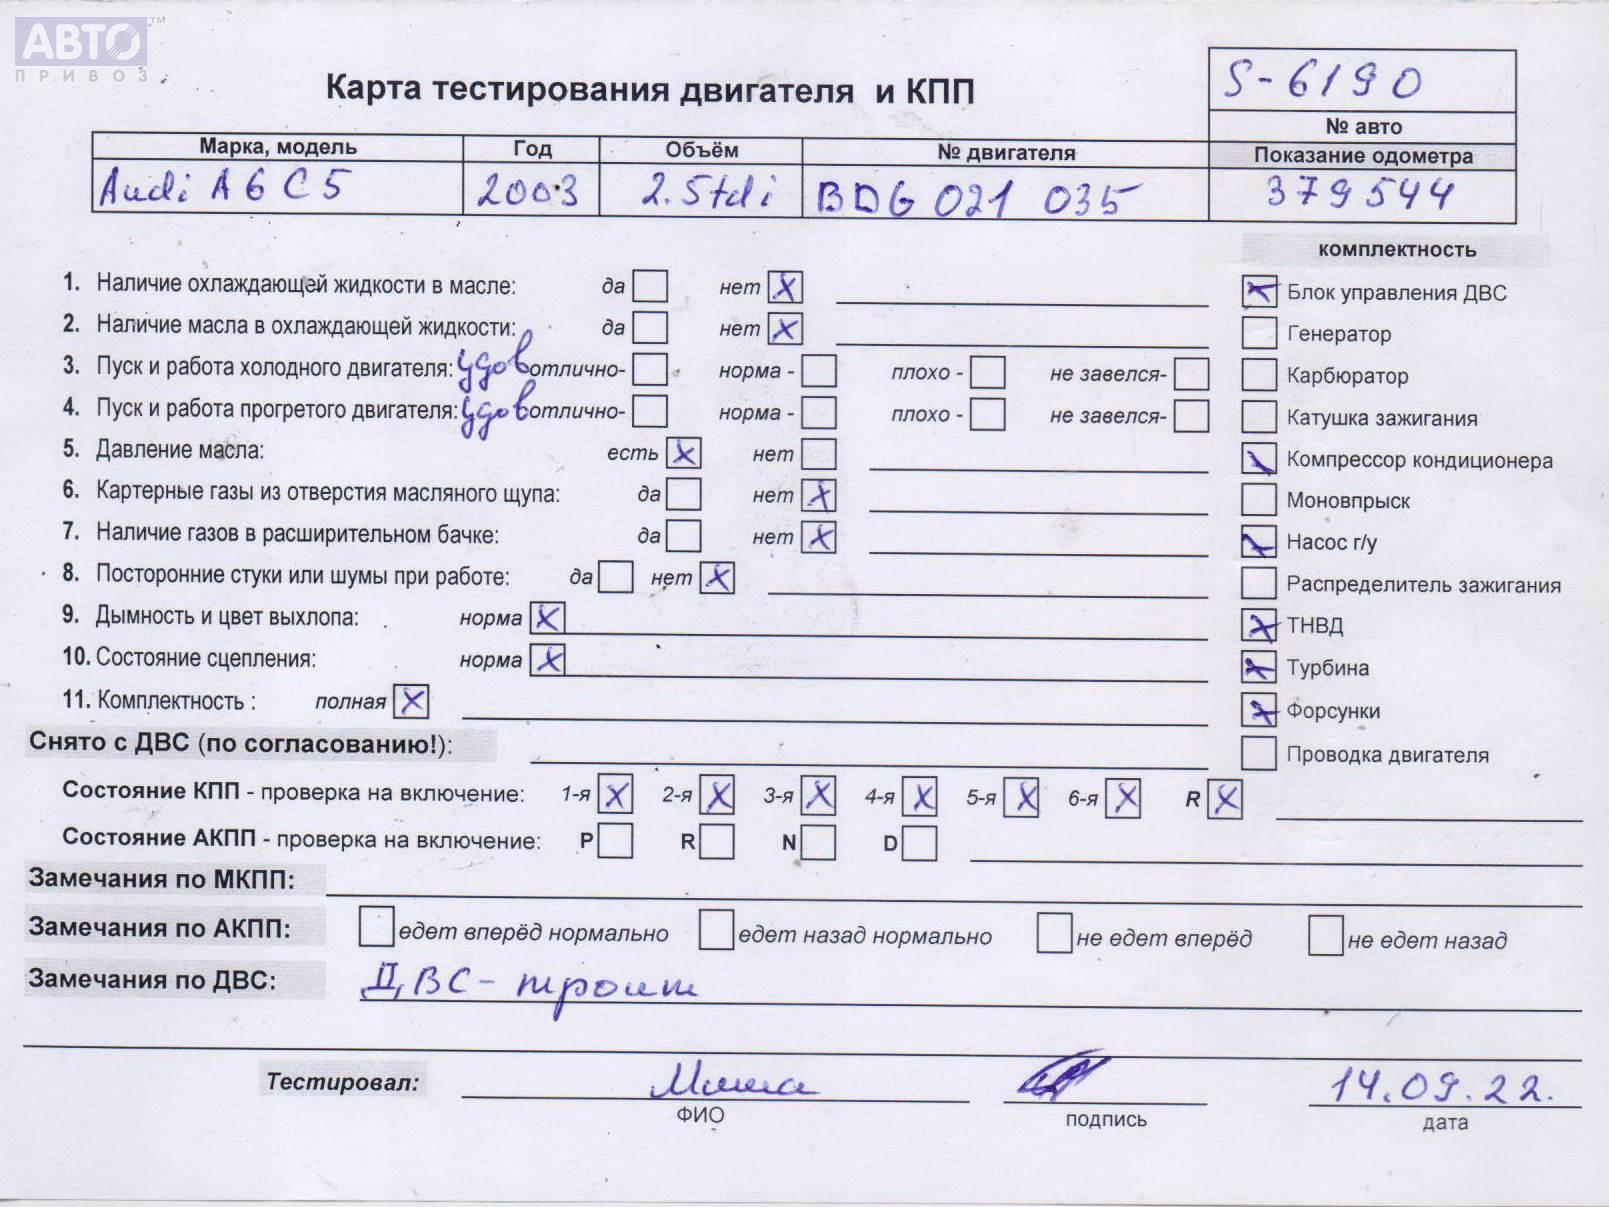 АВТО™
ПРИВОЗ
Карта тестирования двигателя и КПП
S-6190
№ авто
Марка, модель Год Объём № двигателя Показание одометра
Audi A6 C5 2003 2.5tdi BDG 021 035 379544
комплектность
1. Наличие охлаждающей жидкости в масле: да нет X
Блок управления ДВС
2. Наличие масла в охлаждающей жидкости: да нет X
Генератор
3. Пуск и работа холодного двигателя: удов отлично- норма - плохо - не завелся-
Карбюратор
4. Пуск и работа прогретого двигателя: удов отлично- норма - плохо - не завелся-
Катушка зажигания
5. Давление масла: есть X нет
Компрессор кондиционера
6. Картерные газы из отверстия масляного щупа: да нет X
Моновпрыск
7. Наличие газов в расширительном бачке: да нет X
Насос г/у
8. Посторонние стуки или шумы при работе: да нет X
Распределитель зажигания
9. Дымность и цвет выхлопа: норма X
ТНВД
10. Состояние сцепления: норма X
Турбина
11. Комплектность : полная X
Форсунки
Снято с ДВС (по согласованию!):
Проводка двигателя
Состояние КПП - проверка на включение: 1-я X 2-я X 3-я X 4-я X 5-я X 6-я X R X
Состояние АКПП - проверка на включение: P R N D
Замечания по МКПП:
Замечания по АКПП: едет вперёд нормально едет назад нормально не едет вперёд не едет назад
Замечания по ДВС: ДВС - троит
Тестировал: Миша 14.09.22.
ФИО подпись дата